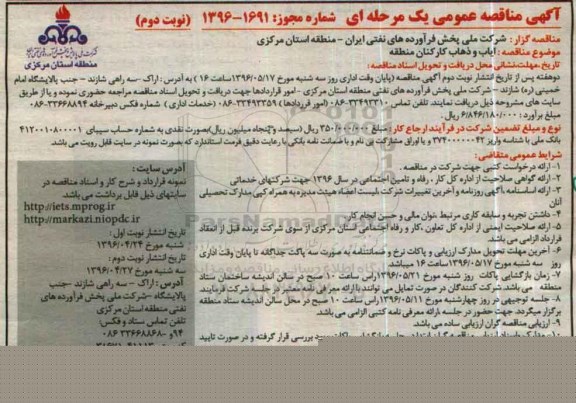 آگهی مناقصه عمومی یک مرحله ای شماره مجوز: ۱۶۹۱-۱۳۹۶ (نوبت دوم)
مناقصه گزار : شرکت ملی پخش فرآورده های نفتی ایران - منطقه استان مرکزی
موضوع مناقصه : ایاب و ذهاب کارکنان منطقه
منطقه استان مرکزی
تاریخ مهلت،نشانی محل دریافت و تحویل اسناد مناقصه:
دوهفته پس از تاریخ انتشار نوبت دوم آگهی مناقصه (پایان وقت اداری روز سه شنبه مورخ ۱۳۹۶/۰۵/۱۷ساعت ۱۶ ) به آدرس : اراک -سه راهی شازند - جنب پالایشگاه امام
خمینی (ره) شازند - شرکت ملی پخش فرآورده های نفتی منطقه استان مرکزی - امور قراردادها جهت دریافت و تحویل اسناد مناقصه مراجعه حضوری نموده و یا از طریق
سایت های مشروحه ذیل دریافت نمایند. تلفن تماس ۳۳۴۹۲۳۱۰-۰۸۶ (امور قراردادها) ۳۳۴۹۲۳۵۹-۰۸۶ (خدمات اداری ) شماره فکس دبیرخانه ۳۳۶۶۸۸۹۴-۰۸۶
مبلغ برآورد : ۶/۸۴۶/۱۸۰/۰۰۰ ریال
نوع و مبلغ تضمین شرکت در فرآیند ارجاع کار : مبلغ ۳۵۰/۰۰۰/۰۰۰ ریال (سیصد و پنجاه میلیون ریال)بصورت نقدی به شماره حساب سیبای ۴۱۲۰۰۱۰۸۰۰۰۰۱
بانک ملی با شناسه واریز ۳۷۴۰۰۰۰۰۴۲ و یا اوراق مشارکت بی نام و یا ضمانت نامه بانکی با رعایت دقیق فرمت استاندارد که بصورت نمونه در سایت قابل رویت می باشد
شرایط عمومی متقاضی:
۱- ارائه درخواست کتبی جهت شرکت در مناقصه .
۲- ارائه گواهی صلاحیت از اداره کل کار ، رفاه و تامین اجتماعی در سال ۱۳۹۶ جهت شرکتهای خدماتی
۳- ارائه اساسنامه ،آگهی روزنامه و آخرین تغییرات شرکت،لیست اعضاء هیئت مدیره به همراه کپی مدارک تحصیلی
آنان
۴- داشتن تجربه و سابقه کاری مرتبط ،توان مالی و حسن انجام کار
۵- ارائه صلاحیت ایمنی از اداره کل تعاون ،کار و رفاه اجتماعی استان مرکزی از سوی شرکت برنده قبل از انعقاد
قرارداد الزامی می باشد.
۶- آخرین مهلت تحویل مدارک ارزیابی و پاکات نرخ و ضمانتنامه به صورت سه پاکت جداگانه تا پایان وقت اداری
روز سه شنبه مورخ ۱۳۹۶/۰۵/۱۷ساعت ۱۶ میباشد
۷- زمان بازگشایی پاکات روز شنبه مورخ ۱۳۹۶/۰۵/۲۱راس ساعت ۱۰ صبح در سالن اندیشه ساختمان ستاد
منطقه می باشد. شرکت کنندگان در صورت تمایل می توانند با ارائه معرفی نامه معتبر در جلسه شرکت فرمایند
۸- جلسه توجیهی در روز چهارشنبه مورخ ۱۳۹۶/۰۵/۱۱راس ساعت ۱۰ صبح در محل سالن اندیشه ستاد منطقه
برگزار میگردد. جهت حضور در جلسه ،ارائه معرفی نامه کتبی الزامی می باشد.
۹- ارزیابی مناقصه گران ارزیابی ساده می باشد.
بررسی قرار گرفته و در صورت تایید
آدرس سایت :
نمونه قرارداد و شرح کار و اسناد مناقصه در
سایتهای ذیل قابل برداشت می باشد.
http://iets.mprog.ir
http://markazi.niopdc.ir
تاریخ انتشار نوبت اول :
شنبه مورخ ۱۳۹۶/۰۴/۲۴
تاریخ انتشار نوبت دوم :
سه شنبه مورخ ۱۳۹۶/۰۴/۲۷
آدرس : اراک - سه راهی شازند -جنب
پالایشگاه -شرکت ملی پخش فرآورده های
نفتی منطقه استان مرکزی
تلفن تماس ستاد و فکس:
۹۴و ۳۳۶۶۸۸۶۸-۰۸۶